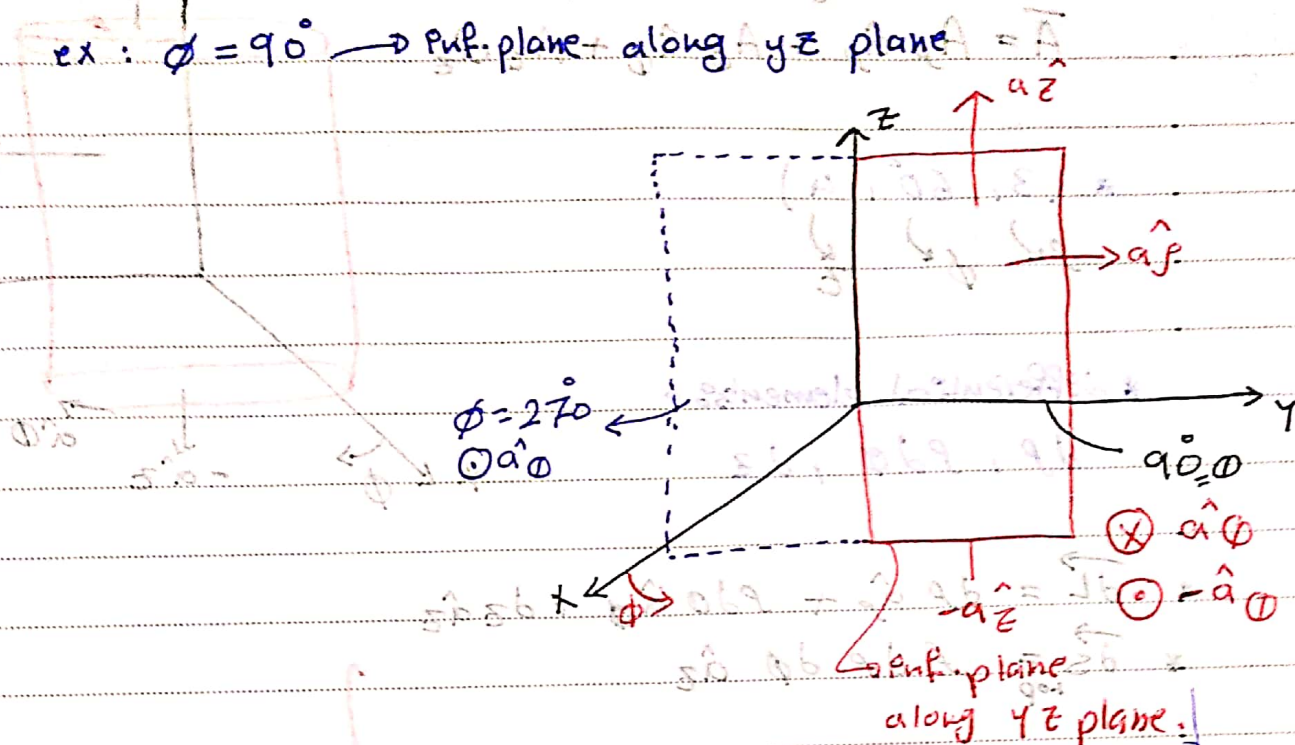 ex : ϕ = 90° → inf. plane along yz plane
az^
z
aρ^
ϕ = 270°
⊙ âϕ
y
90°, ϕ
⊗ âϕ
x
ϕ
-az^
⊙ -âϕ
inf. plane
along yz plane.